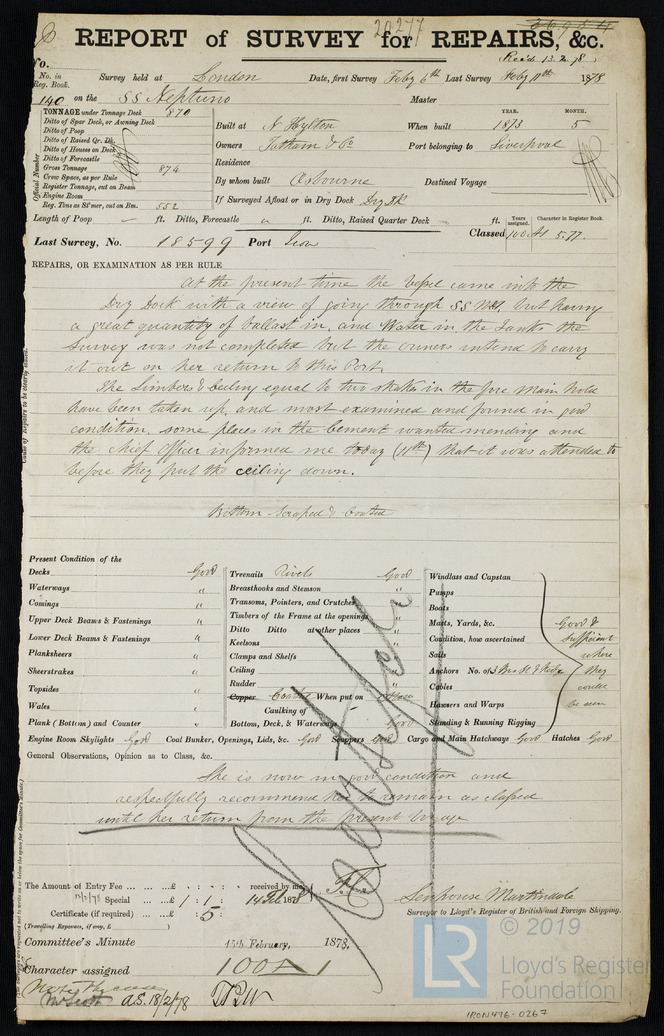 20277
REPORT of SURVEY for REPAIRS, &c.
Rec'd 13.2.78
No.
No. in Reg. Book. Survey held at London Date, first Survey Feby 6th Last Survey Feby 11th 1878
140 on the SS Neptuno Master
TONNAGE under Tonnage Deck 870
Ditto of Spar Deck, or Awning Deck
Ditto of Poop
Ditto of Raised Qr. Dk.
Ditto of Houses on Deck
Ditto of Forecastle
Gross Tonnage 874
Crew Space, as per Rule
Register Tonnage, cut on Beam
Engine Room
Reg. Tons as St'mer, cut on Bm. 552
Official Number
YEAR. MONTH.
Built at N Hylton When built 1873 5
Owners Tatham & Co Port belonging to Liverpool
Residence
By whom built Osbourne Destined Voyage
If Surveyed Afloat or in Dry Dock Dry Dk
Length of Poop ft. Ditto, Forecastle ft. Ditto, Raised Quarter Deck ft.
Years assigned. Character in Register Book.
Last Survey, No. 18599 Port Lon Classed 100A1 5.77.
REPAIRS, OR EXAMINATION AS PER RULE
At the present time the vessel came into the
Dry Dock with a view of going through SS No1, but having
a great quantity of ballast in, and Water in the Tanks the
Survey was not completed but the owners intend to carry
it out on her return to this Port.
The Limbers & ceiling equal to two strakes in the fore main hold
have been taken up, and most examined and found in good
condition. some places in the cement wanted mending and
the chief officer informed me today (11th) that it was attended to
before they put the ceiling down.
Bottom scraped & Coated
Present Condition of the
Decks Good
Waterways "
Comings "
Upper Deck Beams & Fastenings "
Lower Deck Beams & Fastenings "
Planksheers "
Sheerstrakes "
Topsides "
Wales "
Plank (Bottom) and Counter "
Treenails Rivets Good
Breasthooks and Stemson "
Transoms, Pointers, and Crutches "
Timbers of the Frame at the openings "
Ditto Ditto at other places "
Keelsons "
Clamps and Shelfs "
Ceiling "
Rudder "
Copper Coated When put on
Caulking of
Bottom, Deck, & Waterways Good
Windlass and Capstan
Pumps
Boats
Masts, Yards, &c.
Condition, how ascertained
Sails
Anchors No. of
Cables
Hawsers and Warps
Standing & Running Rigging
Good &
sufficient
where
they
could
be seen
Engine Room Skylights Good Coal Bunker, Openings, Lids, &c. Good Scuppers Good Cargo and Main Hatchways Good Hatches Good
General Observations, Opinion as to Class, &c.
She is now in good condition and
respectfully recommend her to remain as classed
until her return from the present voyage
The Amount of Entry Fee £ : : received by me,
Special £ 1 : 1 : 14 Feb 1878
Certificate (if required) £ : 5 :
(Travelling Expenses, if any, £ )
Martindale
Surveyor to Lloyd's Register of British and Foreign Shipping.
Committee's Minute 15th February, 1878,
Character assigned 100A1
A.S. 18/2/78
© 2019
LR Lloyd's Register Foundation
IRON476-0267